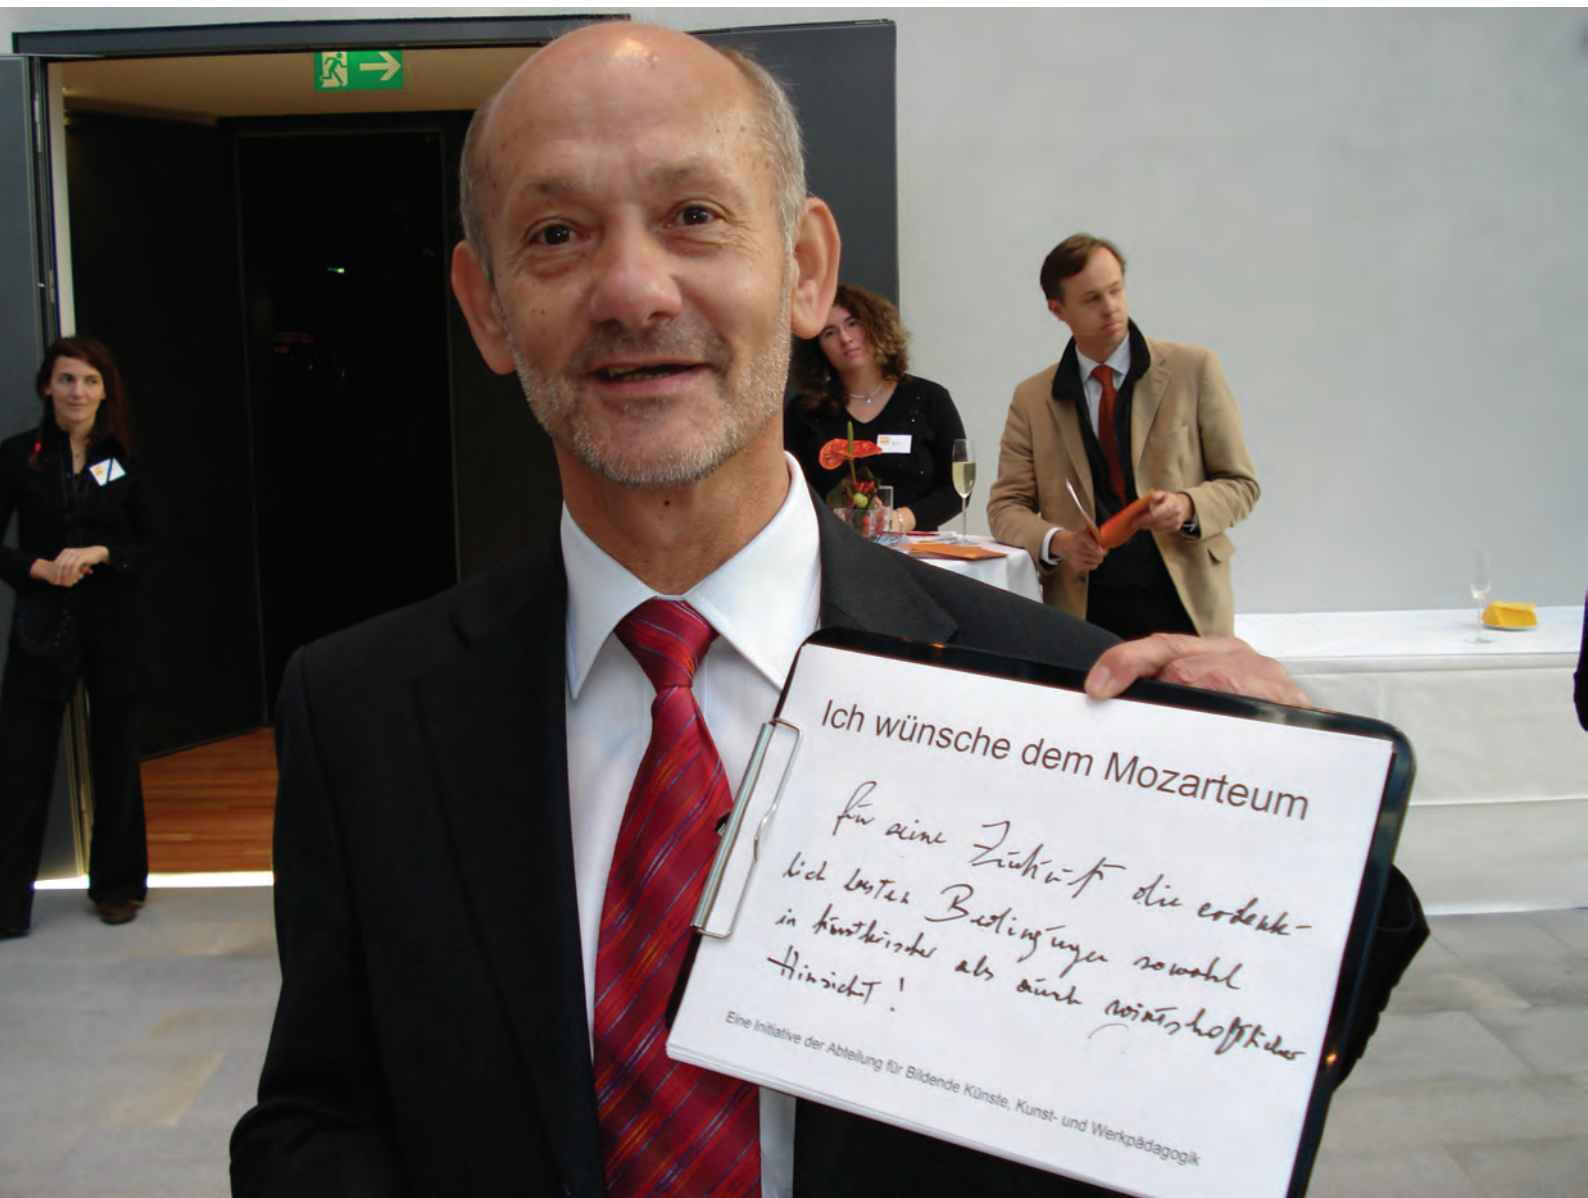 Ich wünsche dem Mozarteum
für seine Zukunft die erdenk-
lich besten Bedingungen sowohl
in künstlerischer als auch wirtschaftlicher
Hinsicht!
Eine Initiative der Abteilung für Bildende Künste, Kunst- und Werkpädagogik